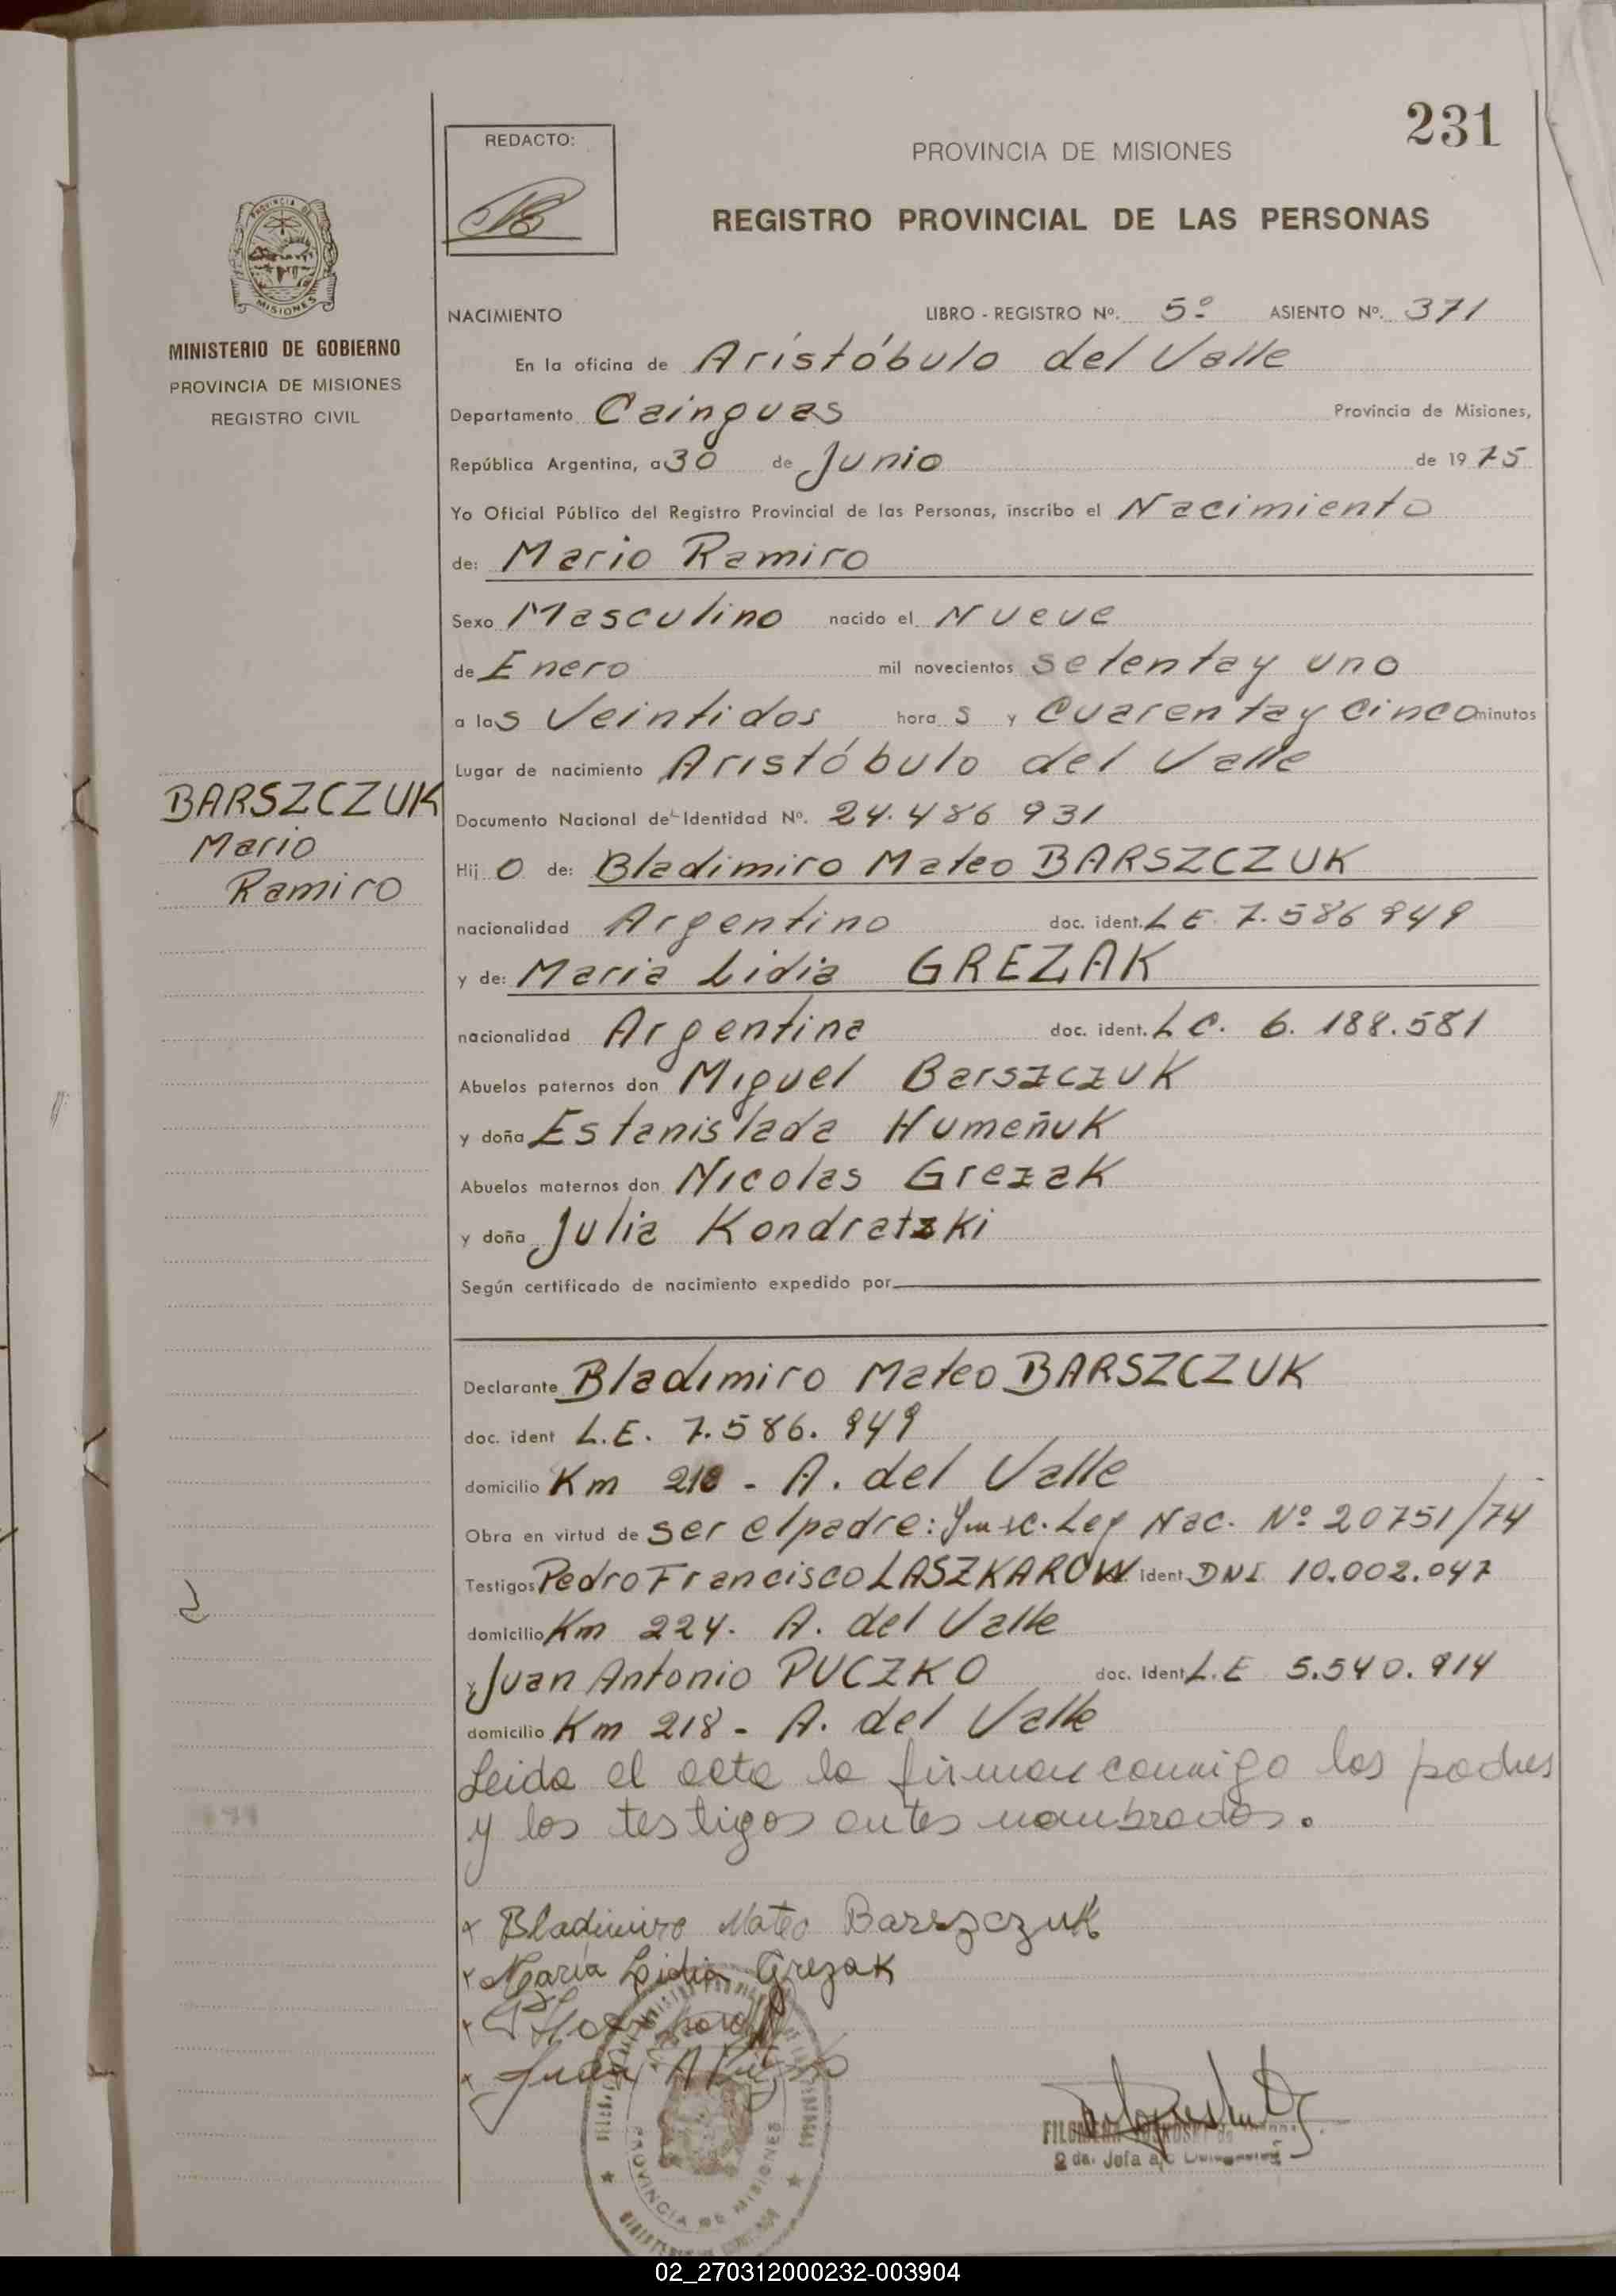 231
REDACTO:
PROVINCIA DE MISIONES
REGISTRO PROVINCIAL DE LAS PERSONAS
PROVINCIA DE
MISIONES
MINISTERIO DE GOBIERNO
PROVINCIA DE MISIONES
REGISTRO CIVIL
NACIMIENTO LIBRO - REGISTRO Nº. 5º ASIENTO Nº. 371
En la oficina de Aristóbulo del Valle
Departamento Cainguas Provincia de Misiones,
República Argentina, a 30 de Junio de 1975
Yo Oficial Público del Registro Provincial de las Personas, inscribo el Nacimiento
de: Mario Ramiro
Sexo Masculino nacido el Nueve
de Enero mil novecientos setenta y uno
a las Veintidos hora s y Cuarenta y Cinco minutos
Lugar de nacimiento Aristóbulo del Valle
BARSZCZUK
Mario
Ramiro
Documento Nacional de Identidad Nº. 24.486 931
Hij o de: Bladimiro Mateo BARSZCZUK
nacionalidad Argentino doc. ident. L E. 7.586 949
y de: Maria Lidia GREZAK
nacionalidad Argentina doc. ident. L C. 6. 188.581
Abuelos paternos don Miguel Barszczuk
y doña Estanislada Humeñuk
Abuelos maternos don Nicolas Grezak
y doña Julia Kondratzki
Según certificado de nacimiento expedido por
Declarante Bladimiro Mateo BARSZCZUK
doc. ident L.E. 7.586. 949
domicilio Km 218 - A. del Valle
Obra en virtud de ser el padre: Insc. Ley Nac. Nº 20751/74
Testigos Pedro Francisco LASZKAROW ident. DNI 10.002.047
domicilio Km 224. A. del Valle
y Juan Antonio PUCZKO doc. ident L.E 5.540.914
domicilio Km 218 - A. del Valle
Leida el acta la firman conmigo los padres
y los testigos antes nombrados.
x Bladimiro Mateo Barszczuk
x María Lidia Grezak
x
x Juan A
PROVINCIA DE MISIONES
2 da. Jefa
02_270312000232-003904